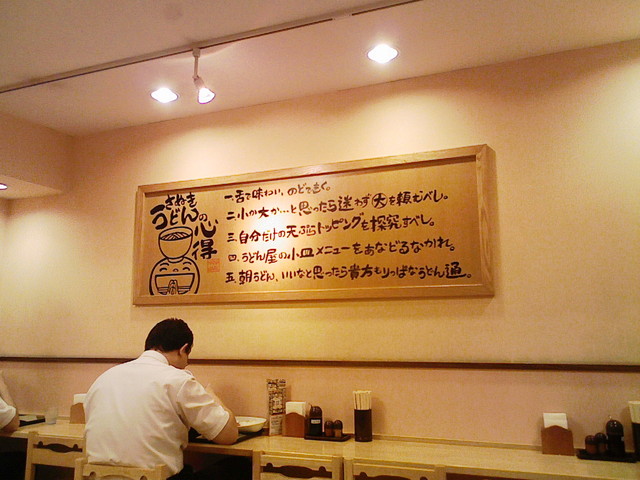 さぬき
うどんの
心得
一.舌で味わい、のどで泣く。
二.小か大か…と思ったら迷わず大を頼むべし。
三.自分だけの天ぷらトッピングを探究すべし。
四.うどん屋の小皿メニューをあなどるなかれ。
五.朝うどん、いいなと思ったら貴方もりっぱなうどん通。